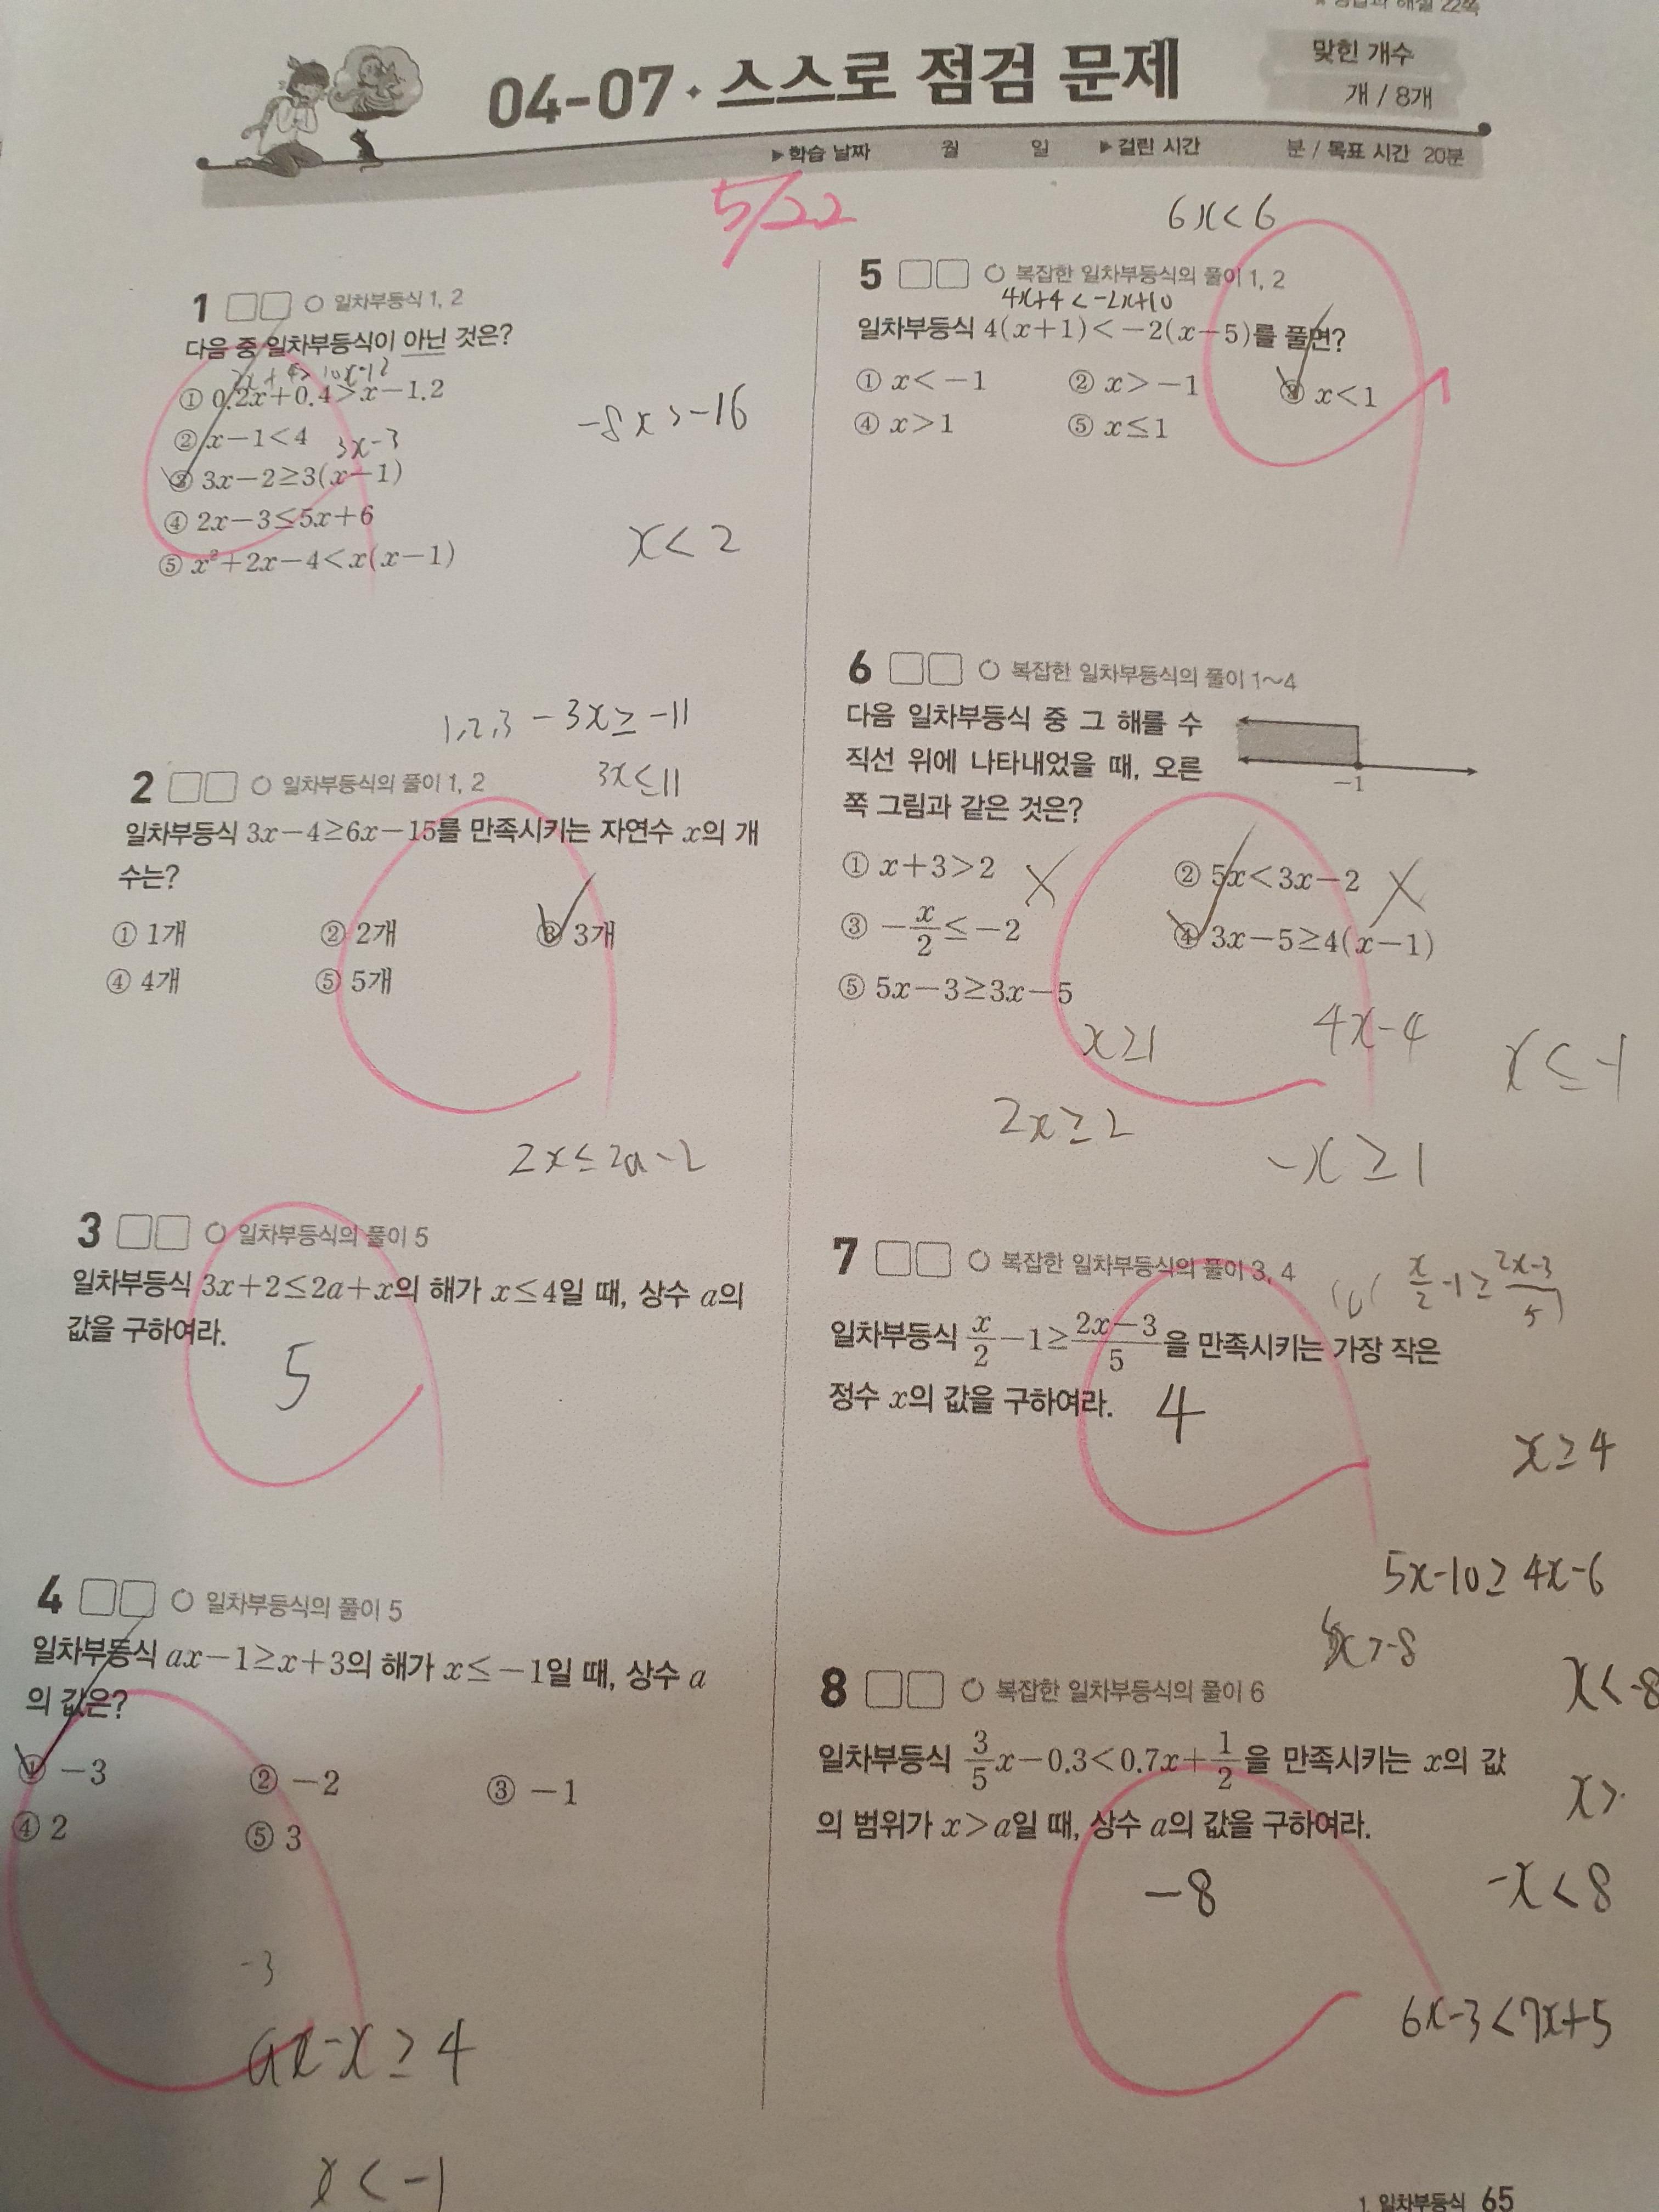 04-07 · 스스로 점검 문제
맞힌 개수
개 / 8개
▶학습 날짜 월 일 ▶걸린 시간 분 / 목표 시간 20분
5/22
1 □□ ○ 일차부등식 1, 2
다음 중 일차부등식이 아닌 것은?
2x+4>10x-12
① 0.2x+0.4>x-1.2
② x-1<4
3x-3
③ 3x-2≥3(x-1)
④ 2x-3≤5x+6
⑤ x²+2x-4<x(x-1)
-8x>-16
x<2
1,2,3 -3x≥-11
3x≤11
2 □□ ○ 일차부등식의 풀이 1, 2
일차부등식 3x-4≥6x-15를 만족시키는 자연수 x의 개
수는?
① 1개 ② 2개 ③ 3개
④ 4개 ⑤ 5개
2x≤2a-2
3 □□ ○ 일차부등식의 풀이 5
일차부등식 3x+2≤2a+x의 해가 x≤4일 때, 상수 a의
값을 구하여라.
5
4 □□ ○ 일차부등식의 풀이 5
일차부등식 ax-1≥x+3의 해가 x≤-1일 때, 상수 a
의 값은?
① -3 ② -2 ③ -1
④ 2 ⑤ 3
-3
ax-x≥4
x<-1
6x<6
5 □□ ○ 복잡한 일차부등식의 풀이 1, 2
4x+4<-2x+10
일차부등식 4(x+1)<-2(x-5)를 풀면?
① x<-1 ② x>-1 ③ x<1
④ x>1 ⑤ x≤1
6 □□ ○ 복잡한 일차부등식의 풀이 1~4
다음 일차부등식 중 그 해를 수
직선 위에 나타내었을 때, 오른
쪽 그림과 같은 것은?
-1
① x+3>2 ② 5x<3x-2
③ -x/2≤-2 ④ 3x-5≥4(x-1)
⑤ 5x-3≥3x-5
x≥1
4x-4
x≤-1
2x≥2
-x≥1
7 □□ ○ 복잡한 일차부등식의 풀이 3, 4
x/2-1≥2x-3/5
일차부등식 x/2-1≥2x-3/5을 만족시키는 가장 작은
정수 x의 값을 구하여라.
4
x≥4
5x-10≥4x-6
x>-8
x<-8
8 □□ ○ 복잡한 일차부등식의 풀이 6
일차부등식 3/5x-0.3<0.7x+1/2을 만족시키는 x의 값
x>
의 범위가 x>a일 때, 상수 a의 값을 구하여라.
-8
-x<8
6x-3<7x+5
1. 일차부등식 65